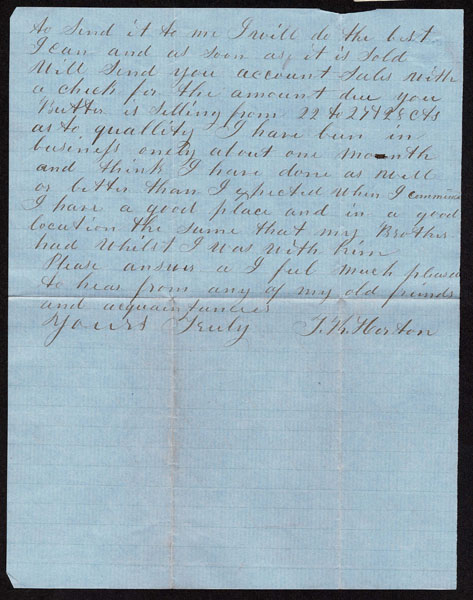 to send it to me I will do the best
I can and as soon as it is sold
Will send you account Sales with
a check for the amount due you
Butter is selling from 22 to 27 & 28 cts
as to quallity I have been in
business onely about one mounth
and think I have done as well
or better than I expected when I commenced
I have a good place and in a good
location the same that my Brother
had whilst I was with him
Please answer a I feel much pleased
to hear from any of my old friends
and acquaintances
Yours Truly T. K. Horton